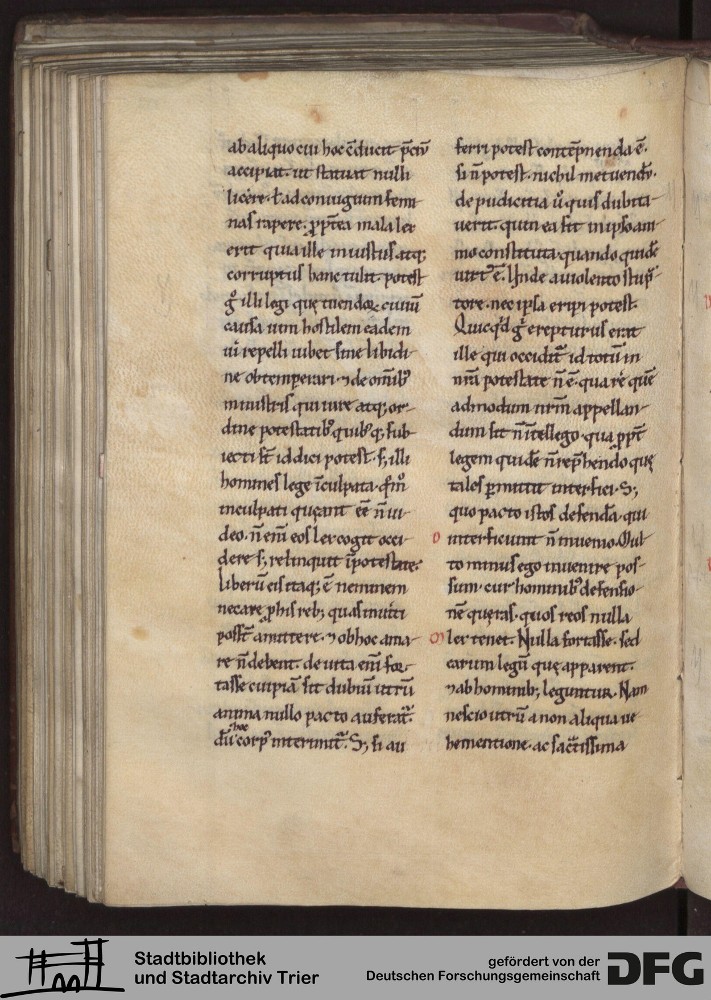 ab aliquo cui hoc c̄ducit p̄ciū
accipiat. ut statuat nulli
licere. ł ad coniugium femi
nas rapere. ꝓpt̄ea mala lex
erit quia ille iniustus atq;
corruptus hanc tulit. potest
gͦ illi legi quę tuendoꝝ ciuiū
causa uim hostilem eadem
ui repelli iubet sine libidi
ne obtemperari. ⁊ de om̄ibꝰ
ministris qui iure atq; or
dine potestatibꝰ quibꝰq; sub
iecti st̄ id dici potest. S; illi
homines lege īculpata. qͦm̊
inculpati queant eē n̄ ui
deo. n̄ eni eos lex cogit occi
dere s; relinquit ī potestate.
liberū eis itaq; ē neminem
necare ꝓ his reb; quas inuiti
possꝉ amittere. ⁊ ob hoc ama
re n̄ debent. de uita eni for
tasse cuipiā sit dubiū utrū
anima nullo pacto auferat᷑.
dū hoc corpꝰ interimit᷑. S; si au
ferri potest contēpnenda ē.
si n̄ potest. nichil metuendū.
de pudicitia ũ quis dubita
uerit. quin ea sit in ipso ani
mo constituta. quando quidē
uirtꝰ ē. Unde a uiolento stup̄
tore. nec ipsa eripi potest.
Quicqͥd gͦ erepturus erat
ille qui occidit᷑ id totū in
nr̄a potestate n̄ ē. quare quē
admodum nr̄m appellan
dum sit n̄ ītellego. qua ꝓpt̄
legem quidē n̄ rep̄hendo quę
tales ꝑmittit interfici. S;
quo pacto istos defendā. qui
interficiunt n̄ inuenio. Mul
to minus ego inuenire pos
sum. cur hominibꝰ defensio
nē queras. quos reos nulla
lex tenet. Nulla fortasse. sed
earum legū quę apparent.
⁊ ab hominib; leguntur. Nam
nescio utrū a non aliqua ue
hementione. ac sac̄tissima
Stadtbibliothek
und Stadtarchiv Trier
gefördert von der
Deutschen Forschungsgemeinschaft
DFG